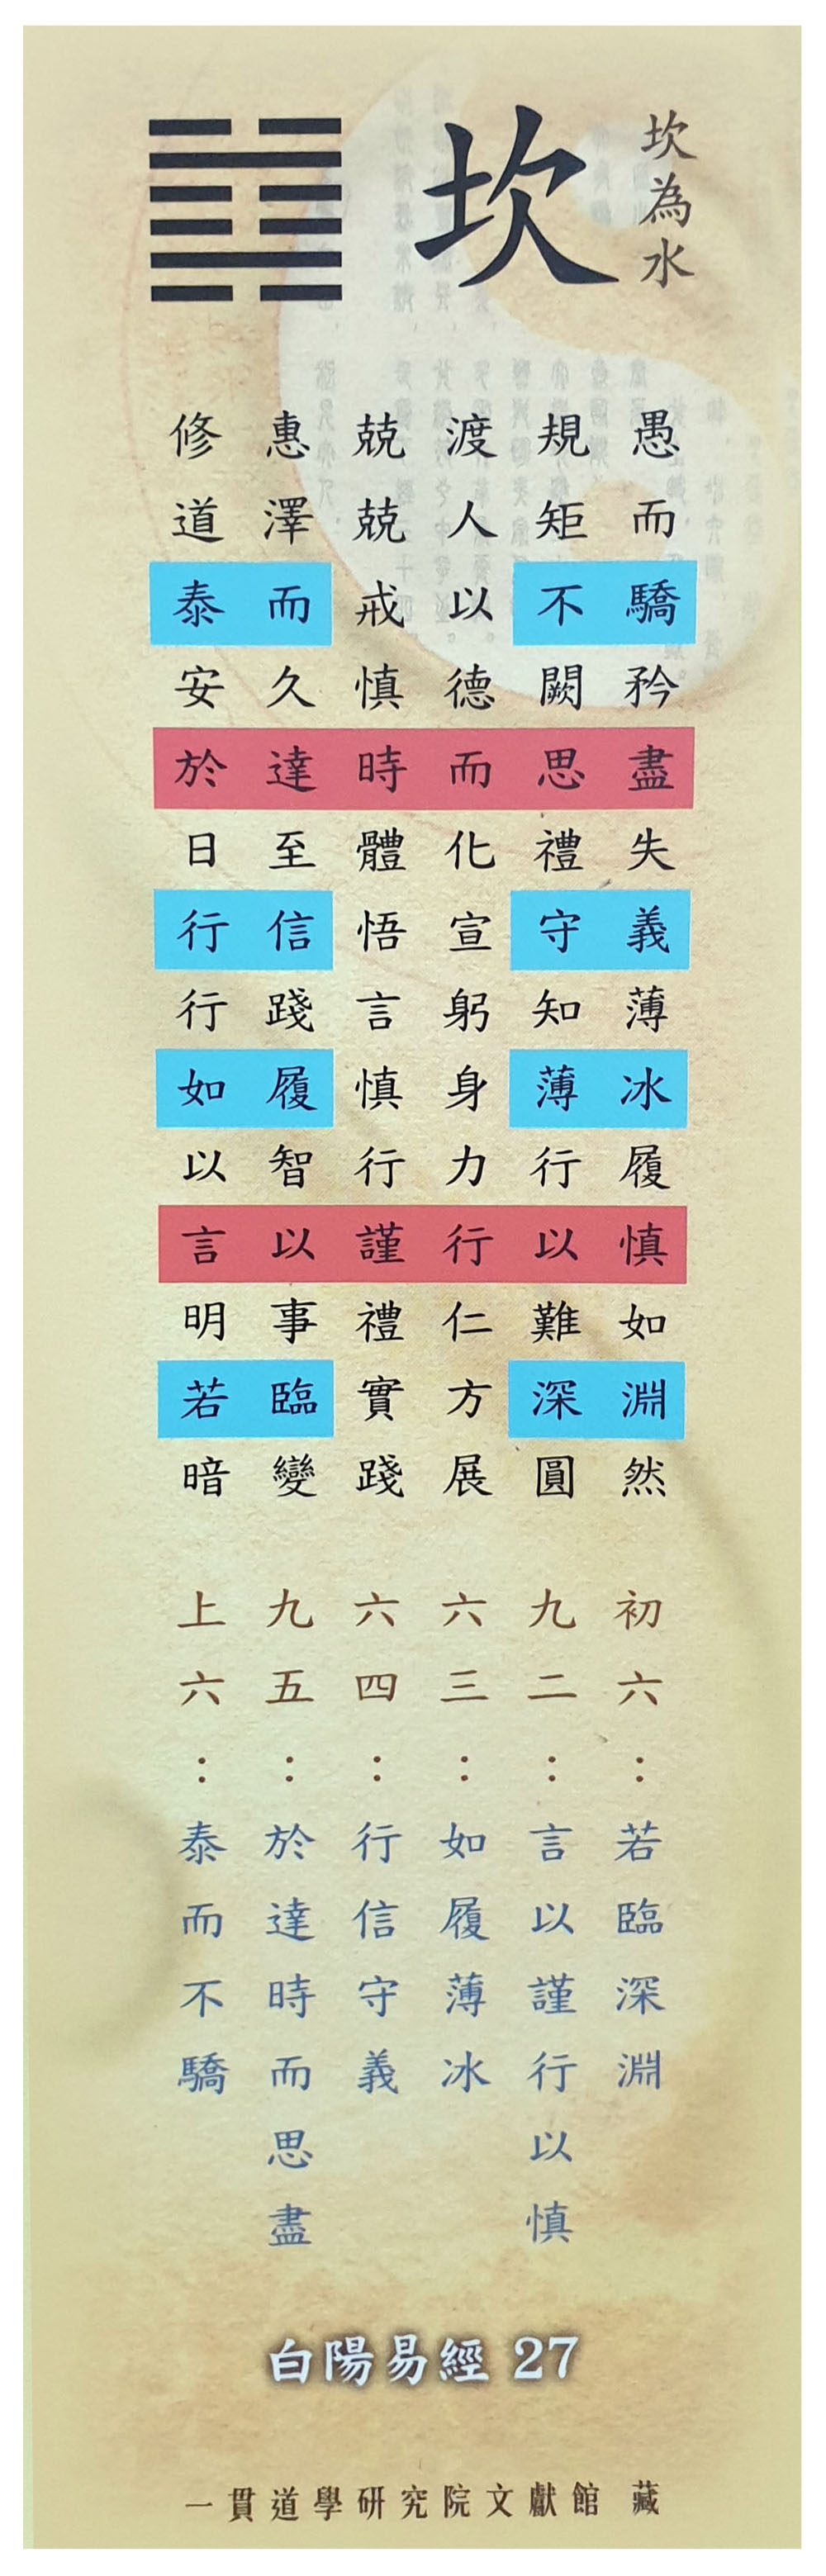 坎為水
坎
愚而驕矜盡失義薄冰履慎如淵然
規矩不闕思禮守知薄行以難深圓
渡人以德而化宣躬身力行仁方展
兢兢戒慎時體悟言慎行謹禮實踐
惠澤而久達至信踐履智以事臨變
修道泰安於日行行如以言明若暗
初六：若臨深淵
九二：言以謹行以慎
六三：如履薄冰
六四：行信守義
九五：於達時而思盡
上六：泰而不驕
白陽易經 27
一貫道學研究院文獻館 藏